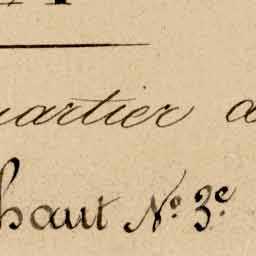 uartier d
haut N.º 3.e